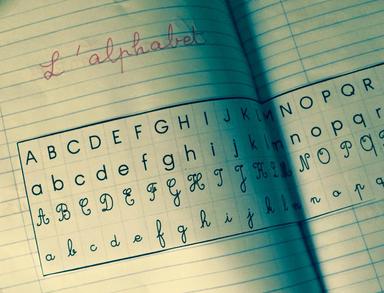 L'alphabet
A B C D E F G H I J K L M N O P Q R
a b c d e f g h i j k l m n o p q r
A B C D E F G H I J K L M N O P Q
a b c d e f g h i j k l m n o p q